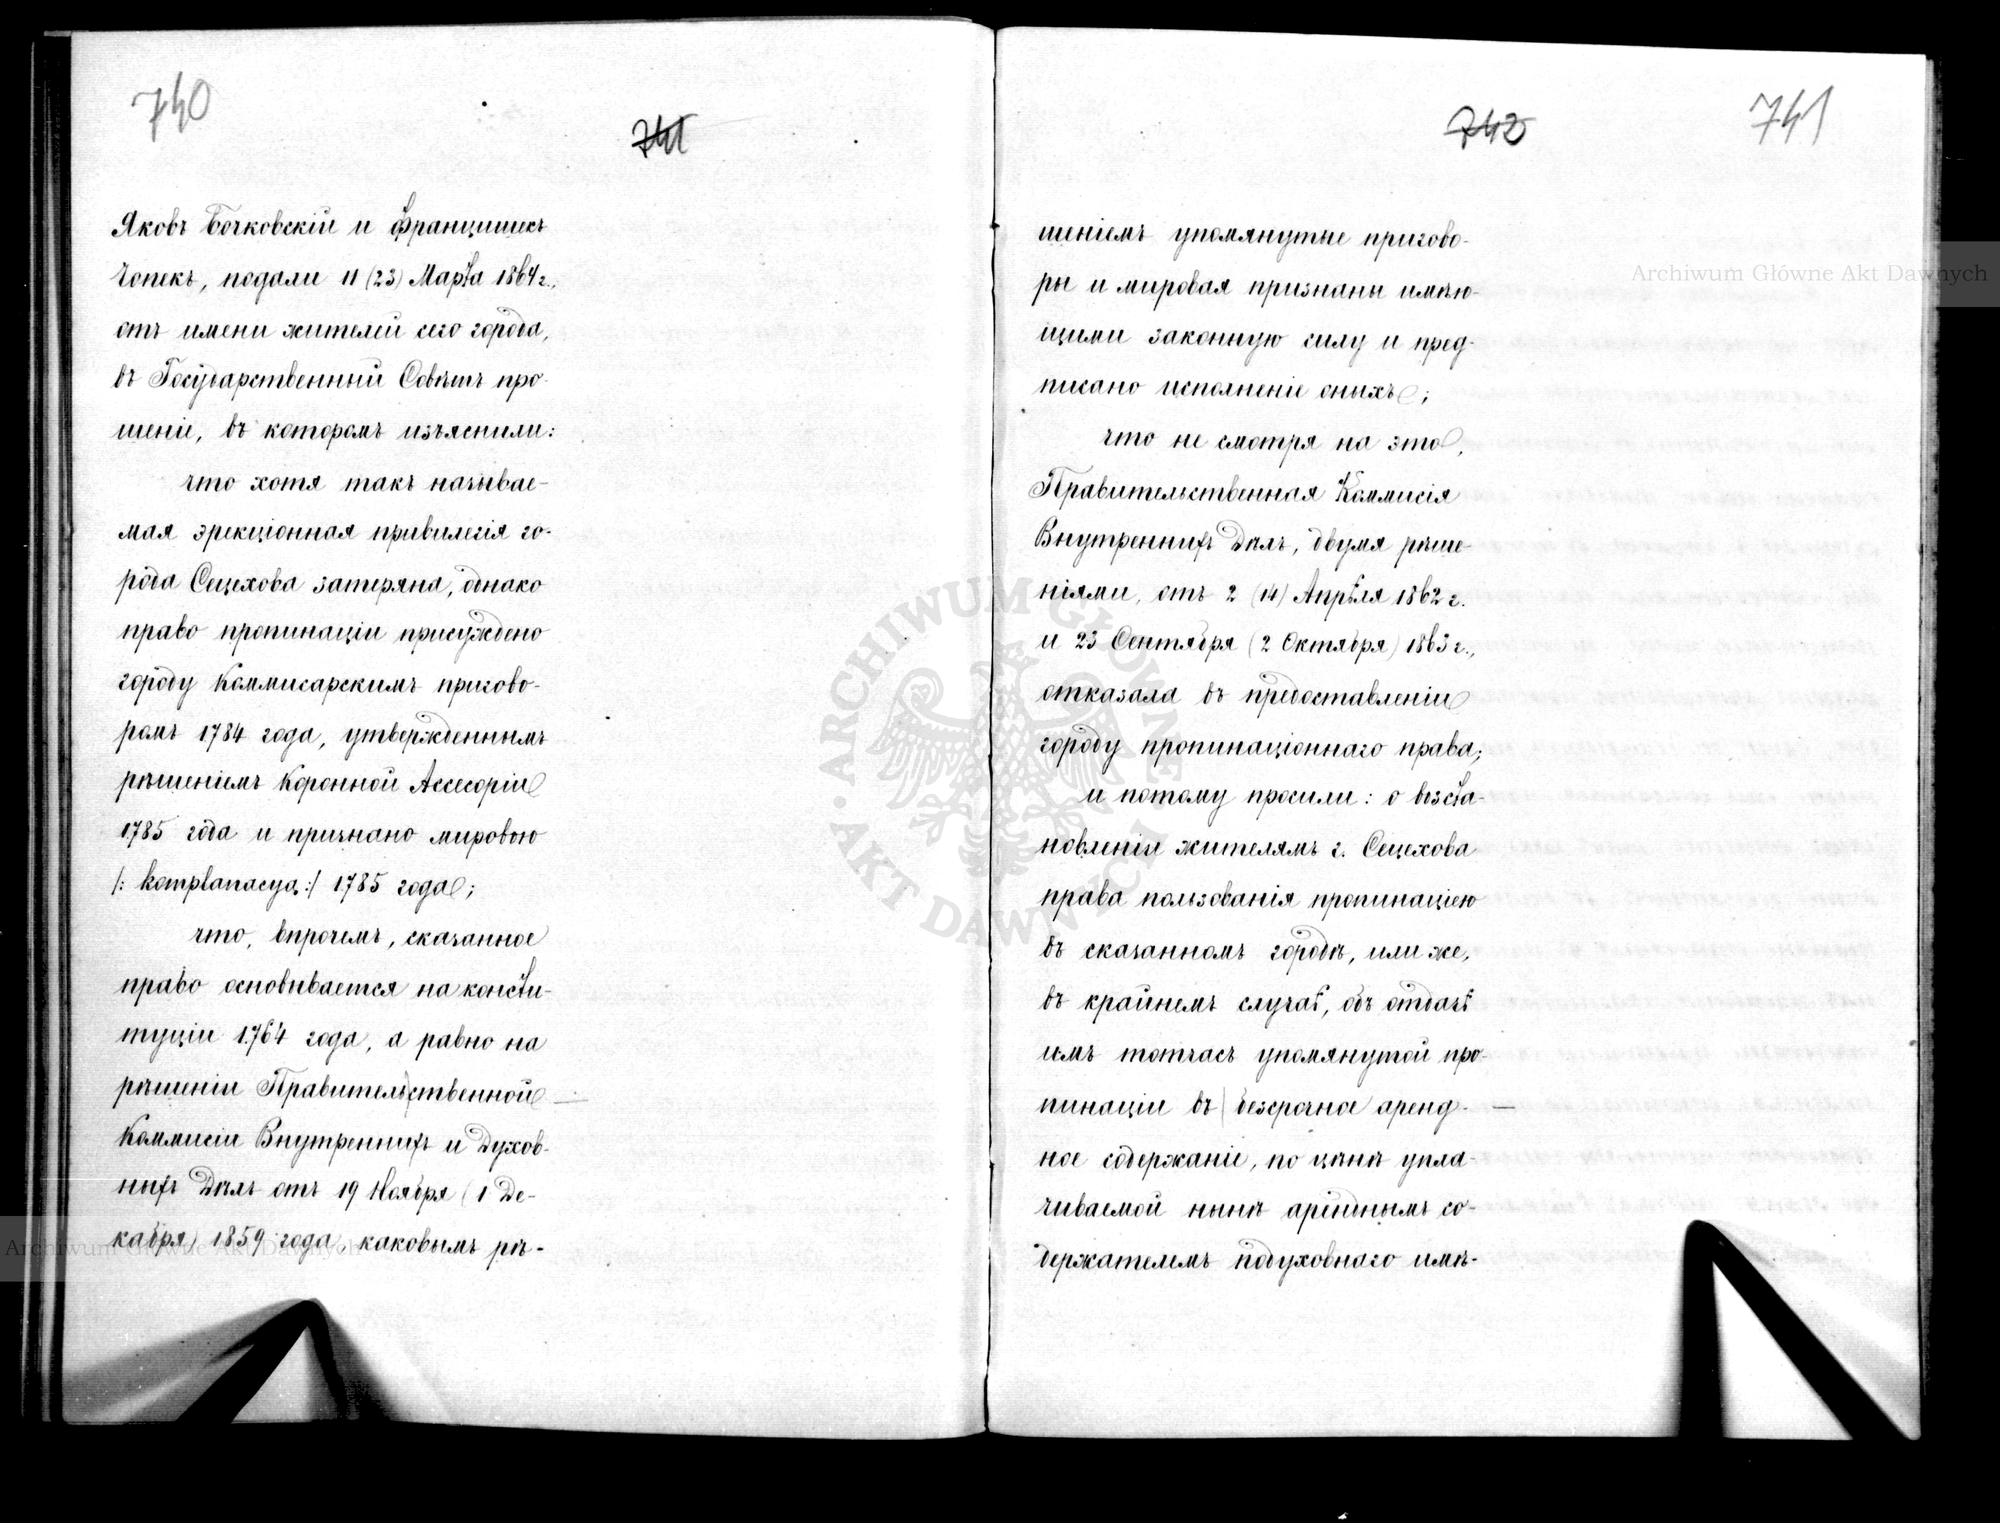 740
741
Яковъ Бочковскій и Францишекъ
Чопекъ, подали 11 (23) Марта 1864 г.,
отъ имени жителей сего города,
въ Государственный Совѣтъ про-
шеніе, въ которомъ изъяснили:
что хотя такъ называе-
мая эрекціонная привилегія го-
рода Сецехова затеряна, однако
право пропинаціи присуждено
городу Коммисарскимъ пригово-
ромъ 1784 года, утвержденнымъ
рѣшеніемъ Коронной Ассесоріи
1785 года и признано мировою
/: komplanacyą :/ 1785 года;
что, впрочемъ, сказанное
право основывается на консти-
туціи 1764 года, а равно на
рѣшеніи Правительственной
Коммисіи Внутреннихъ и Духов-
ныхъ Дѣлъ отъ 19 Ноября (1 Де-
кабря) 1859 года, каковымъ рѣ-
742
741
шеніемъ упомянутые пригово-
ры и мировая признаны имѣю-
щими законную силу и пред-
писано исполненіе оныхъ;
что не смотря на это,
Правительственная Коммисія
Внутреннихъ Дѣлъ, двумя рѣше-
ніями, отъ 2 (14) Апрѣля 1862 г.
и 23 Сентября (2 Октября) 1863 г.,
отказала въ предоставленіи
городу пропинаціоннаго права;
и потому просили: о возста-
новленіи жителямъ г. Сецехова
права пользованія пропинаціею
въ сказанномъ городѣ, или же,
въ крайнемъ случаѣ, объ отдачѣ
имъ тотчасъ упомянутой про-
пинаціи въ безсрочное аренд-
ное содержаніе, по цѣнѣ упла-
чиваемой нынѣ аренднымъ со-
держателемъ подуховнаго имѣ-
Archiwum Główne Akt Dawnych
Archiwum Główne Akt Dawnych
ARCHIWUM GŁÓWNE AKT DAWNYCH